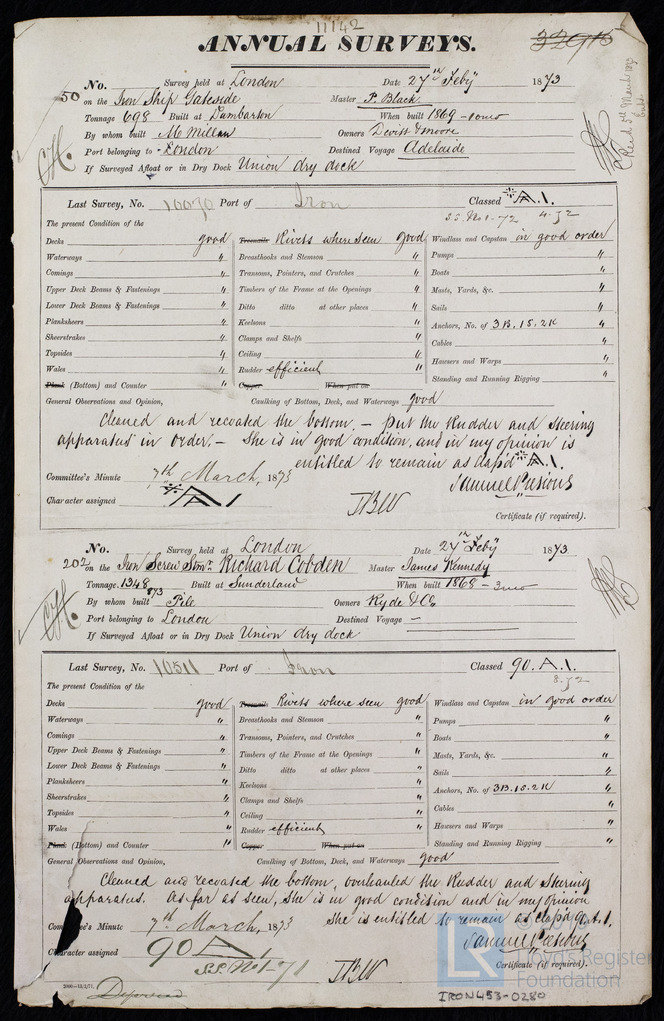 11142
ANNUAL SURVEYS.
32915
No. 50 Survey held at London Date 27th Feby 1873
on the Iron Ship Gateside Master P. Black
Tonnage 698 Built at Dumbarton When built 1869 - 10mo
By whom built McMillan Owners Devitt & Moore
Port belonging to London Destined Voyage Adelaide
If Surveyed Afloat or in Dry Dock Union dry dock
Last Survey, No. 10090 Port of Iron Classed A.1.
S.S. No 1-72 4.J2
The present Condition of the
Decks good Treenails Rivets where seen good Windlass and Capstan in good order
Waterways " Breasthooks and Stemson " Pumps "
Comings " Transoms, Pointers, and Crutches " Boats "
Upper Deck Beams & Fastenings " Timbers of the Frame at the Openings " Masts, Yards, &c. "
Lower Deck Beams & Fastenings " Ditto ditto at other places " Sails "
Planksheers " Keelsons " Anchors, No. of 3B.1S.2K "
Sheerstrakes " Clamps and Shelfs " Cables "
Topsides " Ceiling " Hawsers and Warps "
Wales " Rudder efficient " Standing and Running Rigging "
Plank (Bottom) and Counter " Copper When put on
General Observations and Opinion, Caulking of Bottom, Deck, and Waterways good
Cleaned and recoated the bottom. - Put the Rudder and Steering
apparatus in order. - She is in good condition, and in my opinion is
entitled to remain as clap'd A.1.
Committee's Minute 7th March, 1873 Samuel Presious
Character assigned A1 JBW Certificate (if required).
No. 202 Survey held at London Date 27th Feby 1873
on the Iron Screw Stmr. Richard Cobden Master James Kennedy
Tonnage 1348 873 Built at Sunderland When built 1868 - 3mo
By whom built Pile Owners Ryde & Co
Port belonging to London Destined Voyage -
If Surveyed Afloat or in Dry Dock Union dry dock
Last Survey, No. 10511 Port of Iron Classed 90.A.1.
8.J2
The present Condition of the
Decks good Treenails Rivets where seen good Windlass and Capstan in good order
Waterways " Breasthooks and Stemson " Pumps "
Comings " Transoms, Pointers, and Crutches " Boats "
Upper Deck Beams & Fastenings " Timbers of the Frame at the Openings " Masts, Yards, &c. "
Lower Deck Beams & Fastenings " Ditto ditto at other places " Sails "
Planksheers " Keelsons " Anchors, No. of 3B.1S.2K "
Sheerstrakes " Clamps and Shelfs " Cables "
Topsides " Ceiling " Hawsers and Warps "
Wales " Rudder efficient " Standing and Running Rigging "
Plank (Bottom) and Counter " Copper When put on
General Observations and Opinion, Caulking of Bottom, Deck, and Waterways good
Cleaned and recoated the bottom, overhauled the Rudder and Steering
apparatus. As far as seen, she is in good condition and in my opinion
she is entitled to remain as clap'd 90.A.1.
Committee's Minute 7th March, 1873 Samuel Presious
Character assigned 90 A1 Certificate (if required).
S.S. No 1-71 JBW
2000-13/2/71.
LR
Lloyd's Register
Foundation
IRON453-0280